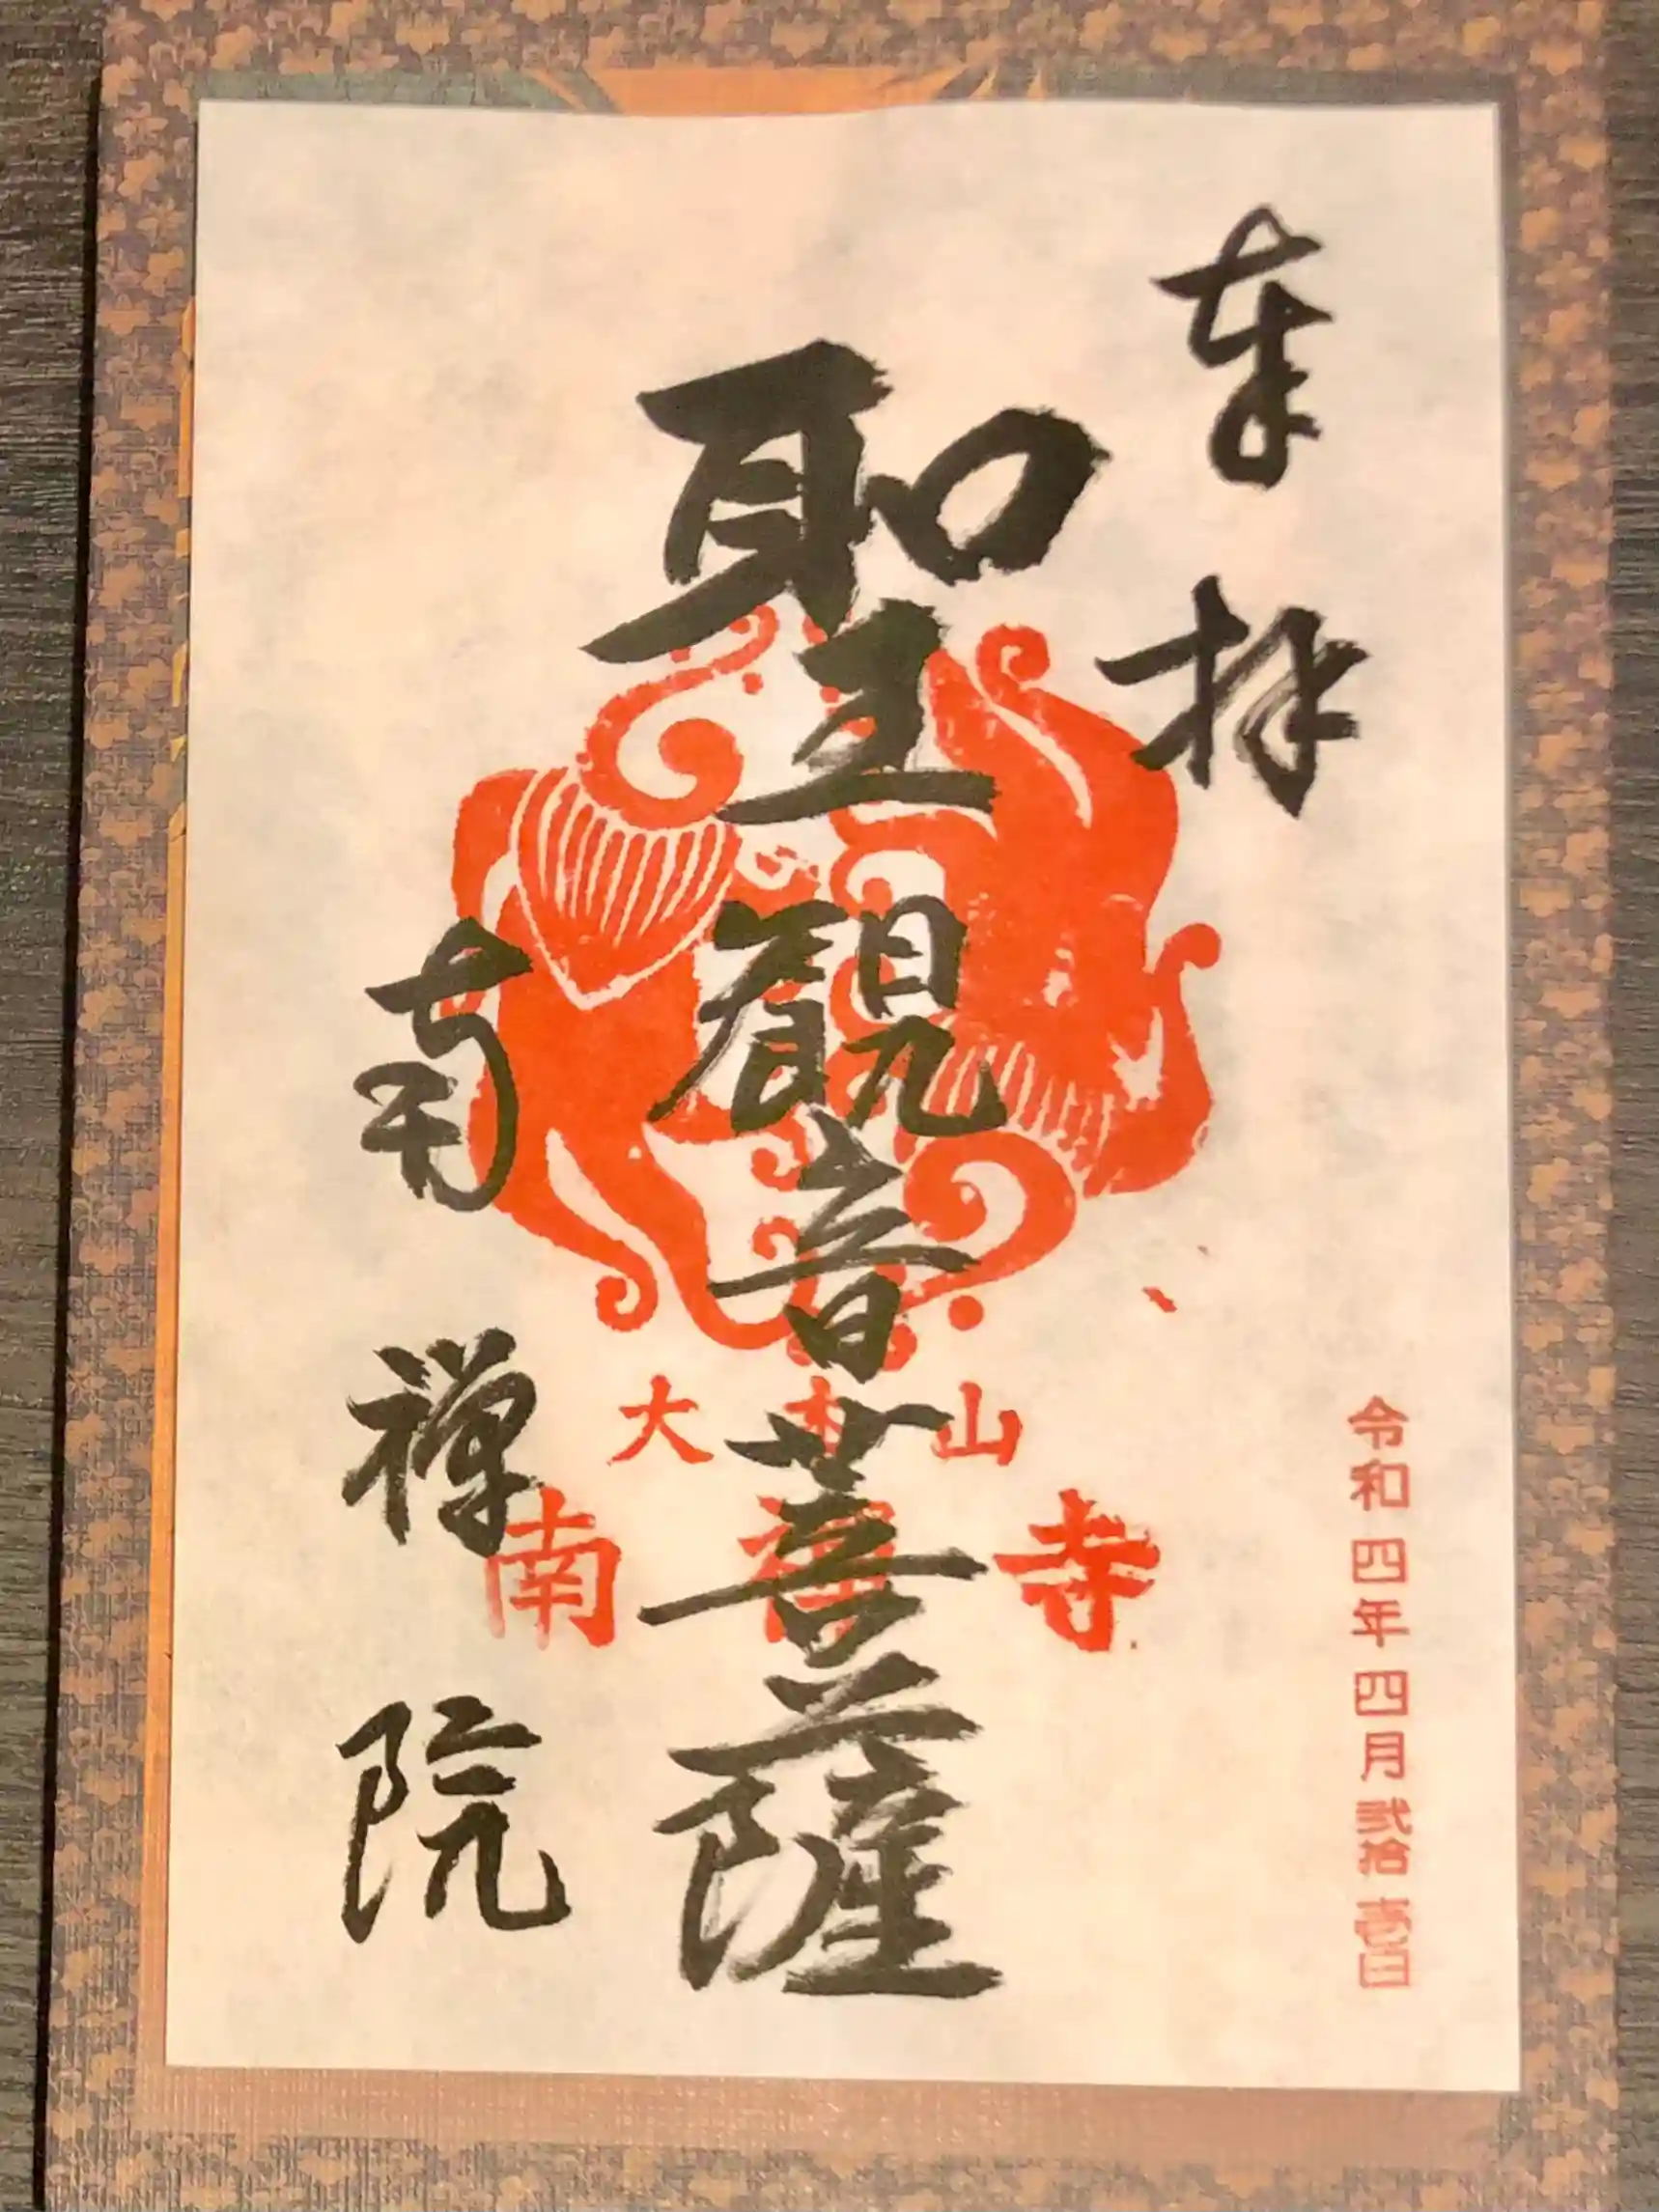 奉拝
令和四年四月弐拾壱日
聖觀音菩薩
大本山
南禅寺
南禅院